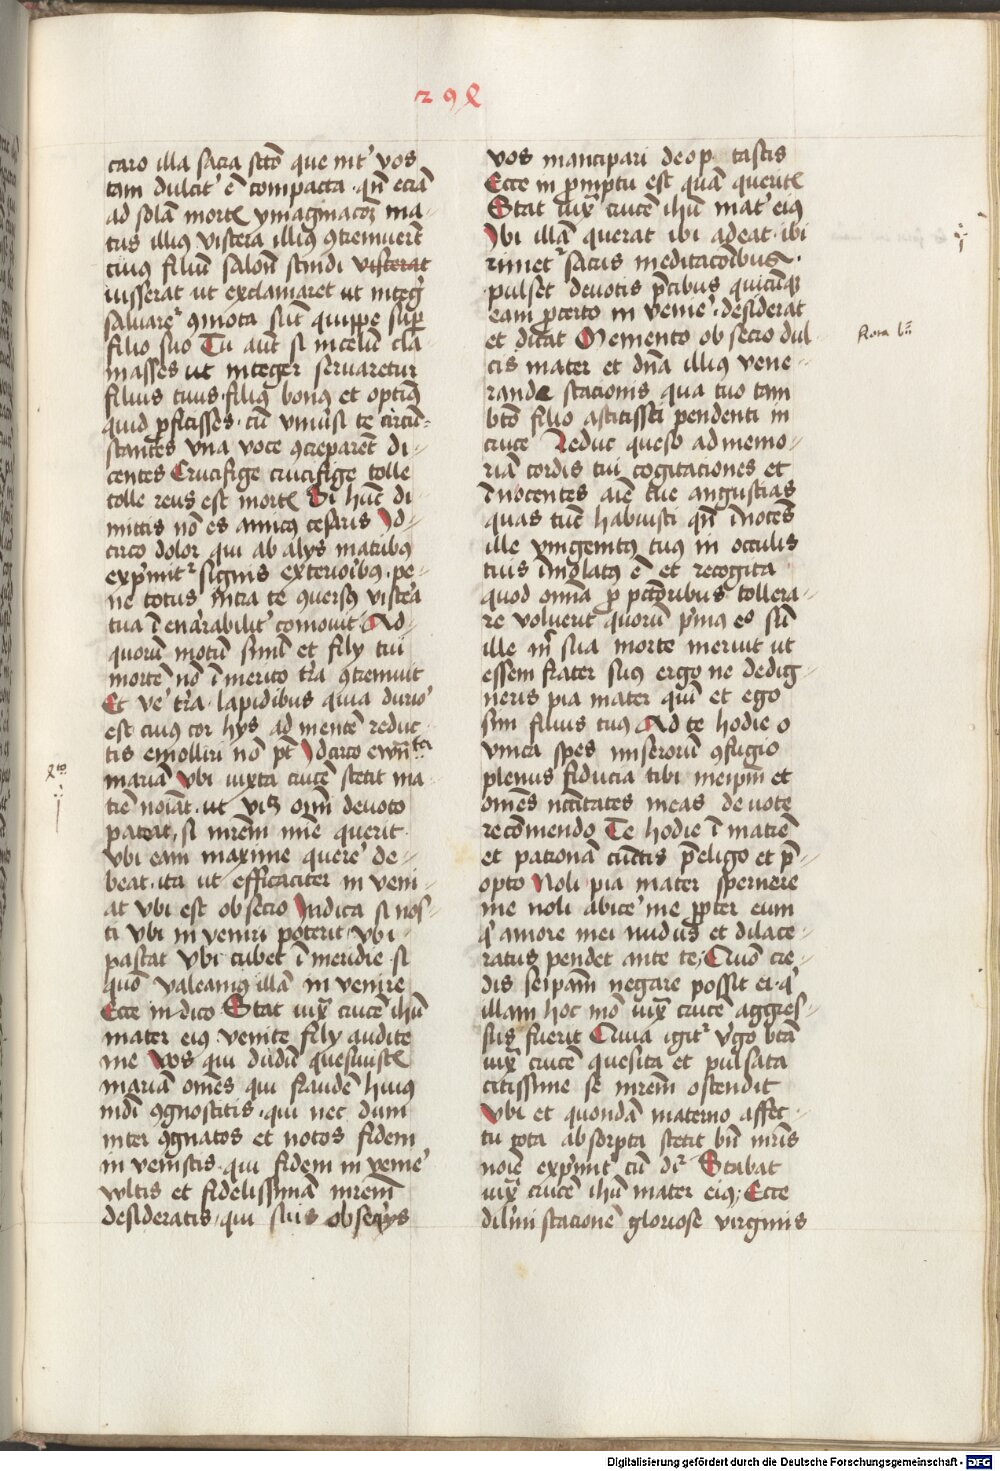 294
caro illa sacra scто que int' vos
tam dulcit' ē compacta qn̄ eciā
ad solā mortē ymaginacoꝫ ma-
tus illiꝰ viscera illiꝰ ꝯtremuerēt
cuiꝰ filiū salon̄ scindi visserat
iusserat ut exclamaret ut integꝰ
salvaret' ꝯmota sūt quippe sup
filio suo Tu aut si in celū cla-
masses ut integer servaretur
filius tuus filiꝰ bonꝰ et optimꝰ
quid pficisses cū vniūsi te circū-
stantes vna voce ꝯcreparēt di-
centes Crucifige crucifige tolle
tolle reus est mortꝭ Si hūc di-
mittis nō es amicꝰ cesaris Id-
circo dolor qui ab alijs matribꝰ
exp̄mit' signis exterioibꝰ pe-
ne totus intra te ꝯversꝰ viscera
tua īenarabilit' comovit Ad
quorū motū simul et filij tui
mortē nō īmerito tr̄a ꝯtremuit
Et ve tr̄a lapidibus quia durio'
est cuiꝰ cor hijs ad mentē reduc-
tis emolliri nō pt Idcirco ewn̄ta
mariā vbi iuxta crucē stetit ma
trē noīat ut viꝫ oīm devoto
pateat, si mrēm mīe querit
vbi eam maxime querē de-
beat ita ut efficaciter in veni-
at vbi est obsecro Indica si nos-
ti vbi in veniri poterit vbi
pascat vbi cubet ī meridie si
quō valeamꝰ illā in venire
Ecce in dico Stat iuxͣ crucē ihū
mater eiꝰ venite filij audite
me Vos qui dudū quesiuistꝭ
mariā om̄es qui fraudē huiꝰ
mdī ꝯgnoscitis qui nec dum
inter ꝯgnatos et notos fidem
in venistis qui fidem in venire'
vultis et fidelissimā mrēm
desideratis, qui suis obseqijs
xto
vos mancipari deop tastis
Ecce in pmptu est quā queritꝭ
Stat iuxͣ crucē ihū mat' eiꝰ
Vbi illā querat ibi adeat ibi
rimet' sacris meditacōibus
pulset devotis p̄cibus quicūqꝫ
eam pcerto in venire' desiderat
et dicat Memento obsecro dul
cis mater et dn̄a illius vene-
rande stacionis qua tuo tam
bto filio astitisti pendenti in
cruce Reduc queso ad memo-
riā cordis tui cogitaciones et
īnocentes aīe tue angustias
quas tūc habuisti qn̄ īnocēs
ille vnigenitꝰ tuꝰ in occulis
tuis īmolatꝰ ē et recogita
quod om̄ia p pctoribus tollera-
re voluerit quorū p̄mꝰ es sū
ille m̄ sua morte meruit ut
essem frater suꝰ ergo ne dedig-
neris pia mater quī et ego
sim filius tuꝰ Ad te hodie o
vnica spes miserorū ꝯfugio
plenus fiducia tibi meipm̄ et
om̄es nccītates meas devote
recōmendo Te hodie ī matrē
et patronā cūctis p̄eligo et p̄-
opto Noli pia mater spernere
me noli abice' me ppter eum
qͥ amore mei nudus et dilace-
ratus pendet ante te; Quō cre-
dis seipam̄ negare possit ei qͥ
illam hoc mō iuxͣ crucē aggres-
sus fuerit Quia igit' v'go btā
iuxͣ crucē quesita et pulsata
citissime se mrēm ostendit
Vbi et quondā materno affec-
tu tota absorpta stetit bn̄ mr̄is
noīe exp̄mit' cū dr̄ Stabat
iuxͣ crucē ihū mater eiꝰ; Ecce
dilmi stacionē gloriose virginis
Digitalisierung gefördert durch die Deutsche Forschungsgemeinschaft - DFG